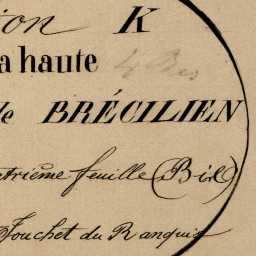 ion K
la haute
4 Bis
de BRÉCILIEN
trième feuille (Bis)
Fouchet du Ranquis